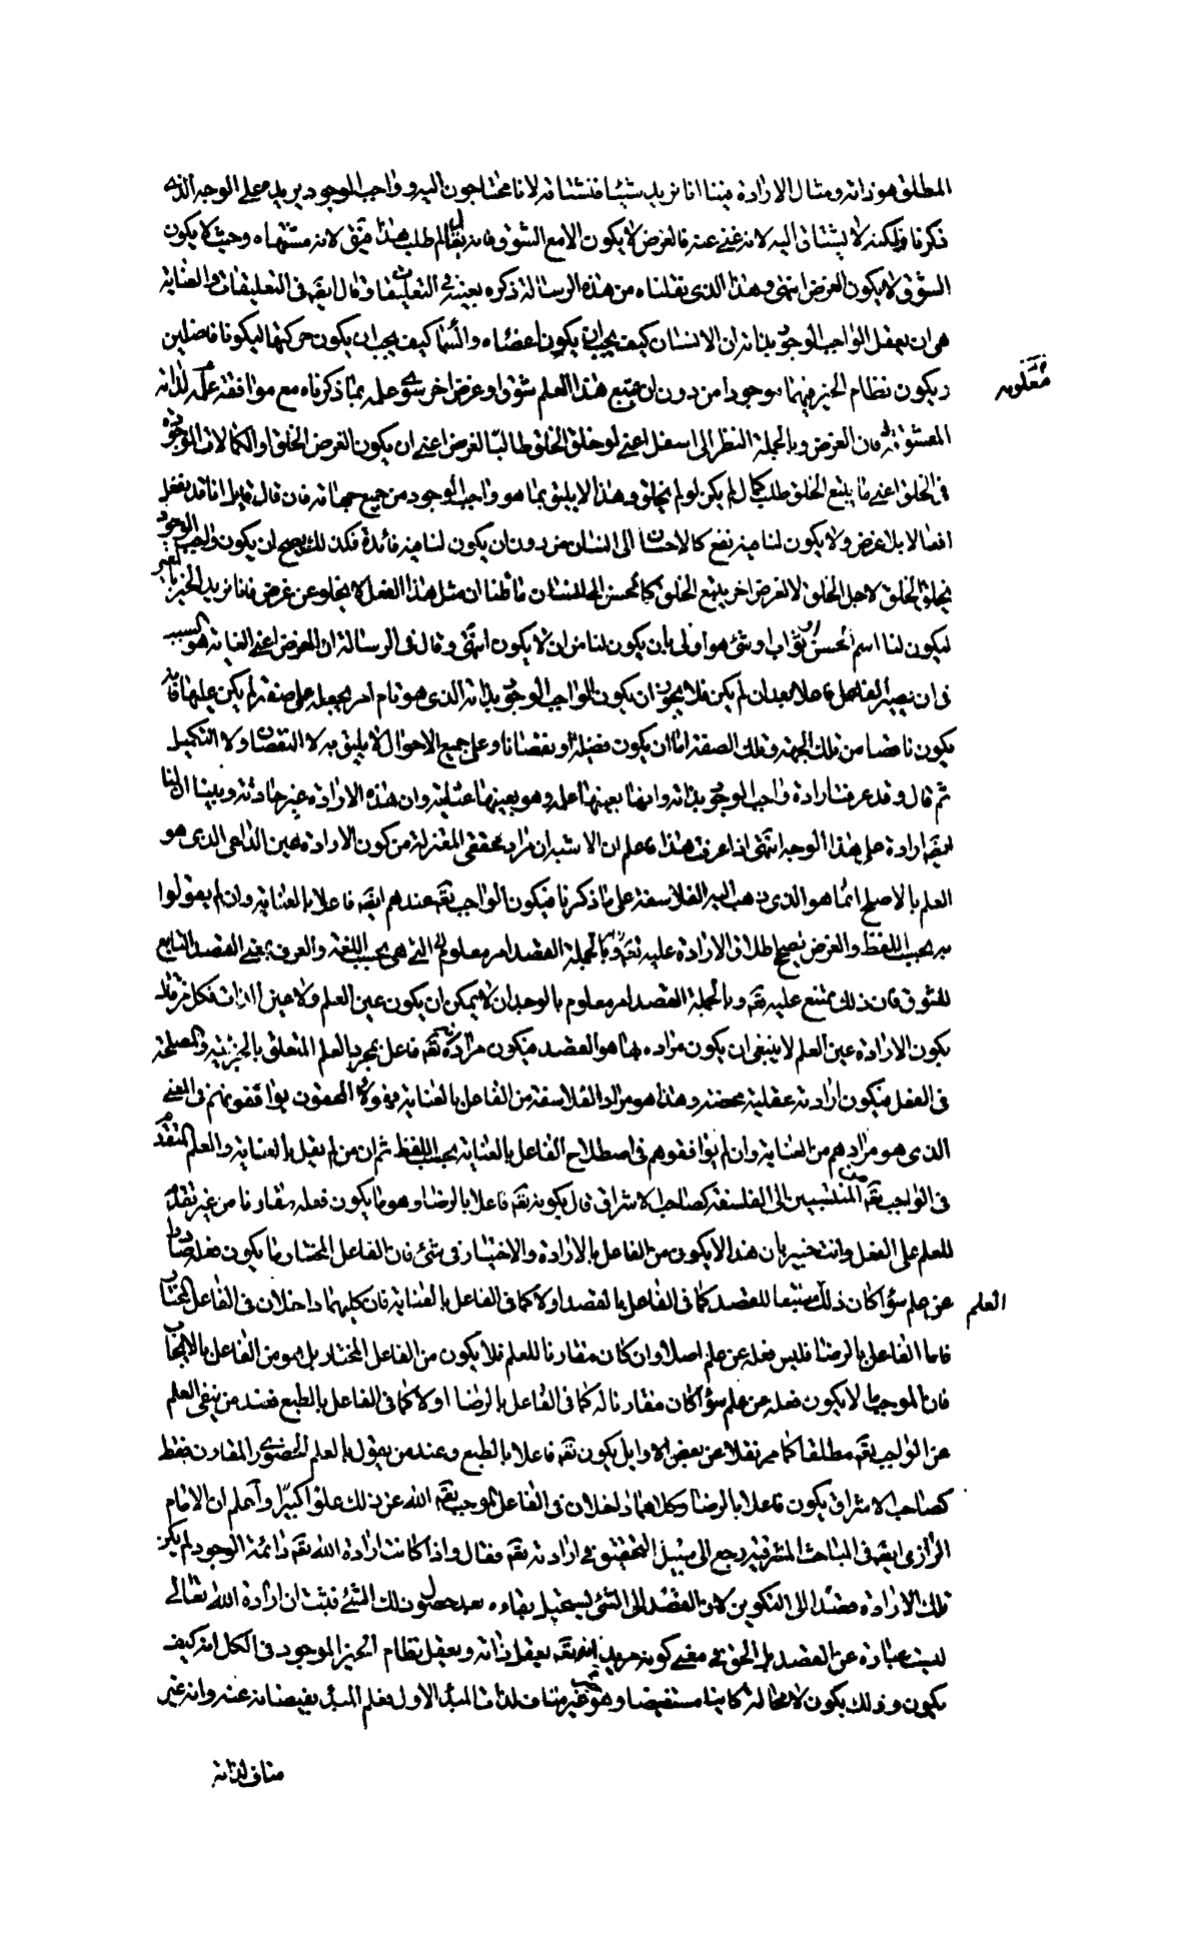 المطلق هو ذاته ومثال الارادة فينا انا نريد شيئا فنشتاقه لانا محتاجون اليه وواجب الوجود يريده على الوجه الذى
ذكرنا ولكنه لا يشتاق اليه لانه غنى عنه فالغرض لا يكون الا مع الشوق فانه يقال لم طلب هذا فيق لانه مشتهاه وحيث لا يكون
الشوق لا يكون الغرض انتهى وهذا الذى نقلناه من هذه الرسالة ذكره بعينه فى التعليقات وقال ايضه فى التعليقات والعناية
هى ان يعقل الواجب الوجود بذاته ان الانسان كيف يجب ان يكون اعضاه والسما كيف يجب ان يكون حركتها ليكونا فاضلين
ويكون نظام الخير فيهما موجودا من دون ان يتبع هذا العلم شوق او غرض اخر سوى علمه بما ذكرناه مع موافقة علمه لذاته
المعشوقة فان الغرض وبالجملة النظر الى اسفل اعنى لو خلق الخلق طالبا لغرض اعنى ان يكون الغرض الخلق او الكمالات الموجودة
فى الخلق اعنى ما يتبع الخلق طلب كمال لم يكن لو لم يخلق وهذا لا يليق بما هو واجب الوجود من جميع جهاته فان قال قايل انا قد نفعل
افعالا بلا غرض ولا يكون لنا فيه نفع كالاحسان الى انسان من دون ان يكون لنا فيه فائدة فكذلك يصح ان يكون واجب الوجود
يخلق الخلق لاجل الخلق لا لغرض اخر يتبع الخلق كما نحسن الى انسان قلنا ان مثل هذا الفعل لا يخلو عن غرض فانا نريد الخير بالغير
ليكون لنا اسم حسن او ثواب او شئ هو اولى بان يكون لنا من ان لا يكون انتهى وقال فى الرسالة ان الغرض اعنى الغاية هو السبب
فى ان يصير الفاعل فاعلا بعد ان لم يكن فلا يجوز ان يكون للواجب الوجود بذاته الذى هو تام امر يجعله على صفة لم يكن عليها فانه
يكون ناقصا من تلك الجهة وتلك الصفة اما ان يكون فضيلة او نقصانا وعلى جميع الاحوال لا يليق به لا النقصان ولا التكميل
ثم قال وقد عرفت ارادة واجب الوجود بذاته وانها بعينها علمه وهو بعينها عناية وان هذه الارادة غير حادثة وبينا ان لنا
ايضه ارادة على هذا الوجه انتهى اذا عرفت هذا فاعلم ان الاشبه ان مراد محققى المعتزلة من كون الارادة عين الداعى الذى هو
العلم بالاصلح انما هو الذى ذهب اليه الفلاسفة على ما ذكرنا فيكون الواجب تعه عندهم ايضه فاعلا بالعناية وان لم يقولوا
به بحسب اللفظ والغرض تصحيح اطلاق الارادة عليه تعه وبالجملة القصد امر معلوم التى هى بحسب اللغة والعرف بمعنى القصد التابع
للشوق فان ذلك ممتنع عليه تعه وبالجملة القصد امر معلوم بالوجدان لا يمكن ان يكون عين العلم ولا عين الذات فكل من قال
بكون الارادة عين العلم لا ينبغى ان يكون مراده بها هو القصد فيكون مراده انه تعه فاعل بمجرد العلم المتعلق بالخيرية والمصلحة
فى الفعل فيكون ارادته عقلية محضة وهذا هو مراد الفلاسفة من الفاعل بالعناية فهؤلاء المحققون يوافقونهم فى المعنى
الذى هو مرادهم من العناية وان لم يوافقوهم فى اصطلاح الفاعل بالعناية بحسب اللفظ ثم ان من لم يقبل بالعناية والعلم المتقدم
فى الواجب تعه من المنتسبين الى الفلسفة كصاحب الاشراق قال بكونه تعه فاعلا بالرضا وهو ما يكون فعله مقارنا من غير تقدم
للعلم على الفعل وانت خبير بان هذا لا يكون من الفاعل بالارادة والاختيار فى شئ فان الفاعل المختار ما يكون فعله صادرا
عن علم سواء كان ذلك العلم مستتبعا للقصد كما فى الفاعل بالقصد او لا كما فى الفاعل بالعناية فان كليهما داخلان فى الفاعل المختار
فاما الفاعل بالرضا فليس فعله عن علم اصلا وان كان مقارنا للعلم فلا يكون من الفاعل المختار بل هو من الفاعل بالايجاب
فان الموجب ما لا يكون فعله عن علم سواء كان مقارنا له كما فى الفاعل بالرضا او لا كما فى الفاعل بالطبع فعند من ينفى العلم
عن الواجب تعه مطلقا كما مر نقلا عن بعض الاوايل يكون تعه فاعلا بالطبع وعند من يقول بالعلم الحضورى المقارن فقط
كصاحب الاشراق يكون فاعلا بالرضا وكلاهما داخلان فى الفاعل الموجب تعه الله عن ذلك علوا كبيرا واعلم ان الامام
الرازى ايضه فى المباحث المشرقية رجع الى سبيل التحقيق فى ارادته تعه فقال واذا كانت ارادة الله تعه دائمة الوجود لم يكن
تلك الارادة قصدا الى التكوين لان القصد الى الشئ يستحيل بقاءه بعد حصول ذلك الشئ فثبت ان ارادة الله تعالى
ليست عبارة عن القصد بل الحق فى معنى كونه مريدا انه تعه يعقل ذاته ويعقل نظام الخير الموجود فى الكل انه كيف
يكون وذلك يكون لا محالة كاينا مستفيضا وهو غير مناف لذات المبدأ الاول فعلم المبدأ بفيضانه عنه وانه غير
مناف لذاته